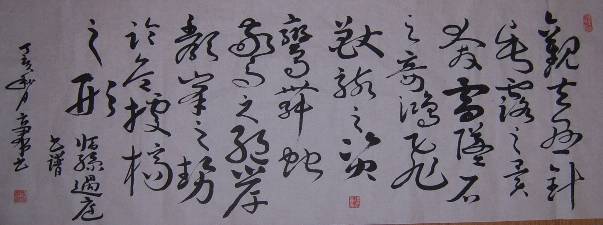 觀夫懸針
垂露之異
奔雷墜石
之奇鴻飛
獸駭之資
鸞舞蛇
驚之態絕岸
頹峯之勢
臨危據槁
之形
臨孫過庭
書譜
丁亥秋月
書